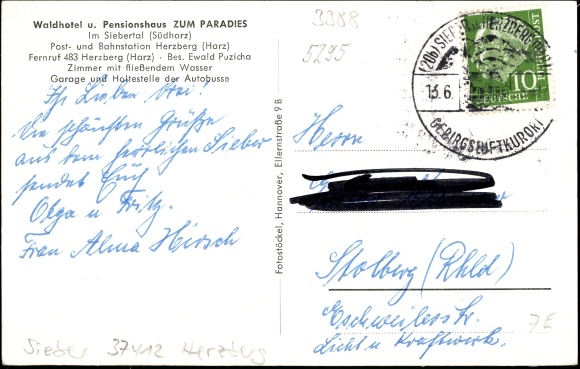 Waldhotel u. Pensionshaus ZUM PARADIES
Im Siebertal (Südharz)
Post- und Bahnstation Herzberg (Harz)
Fernruf 483 Herzberg (Harz) · Bes. Ewald Puzicha
Zimmer mit fließendem Wasser
Garage und Haltestelle der Autobusse
Ihr Lieben drei!
Die schönsten Grüße
aus dem herrlichen Sieber
sendet Euch
Olga u Fritz.
Frau Alma Hirsch
Sieber 37412 Herzberg
Fotostöckel, Hannover, Ellernstraße 9 B
3388
5295
(20b) SIEBER ü. HERZBERG (HARZ)
13.6.
GEBIRGSLUFTKURORT
10
DEUTSCHE
POST
Herrn
Stolberg (Rhld)
Eschweilerstr.
Licht u Kraftwerk.
7E